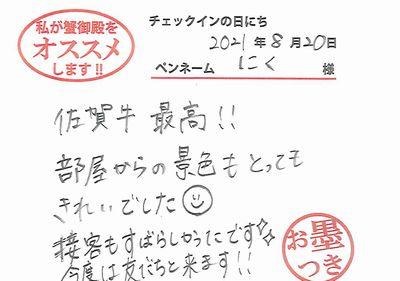 私が蟹御殿を
オススメ
します!!
チェックインの日にち
2021年8月20日
ペンネーム にく 様
佐賀牛 最高!!
部屋からの景色もとっても
きれいでした
接客もすばらしかったです
今度は友だちと来ます!!
お墨
つき